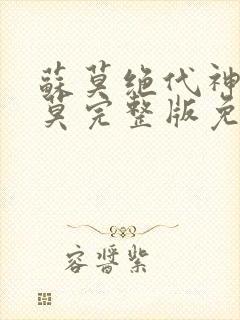 蘇莫绝代神
莫完整版免
容晋紫